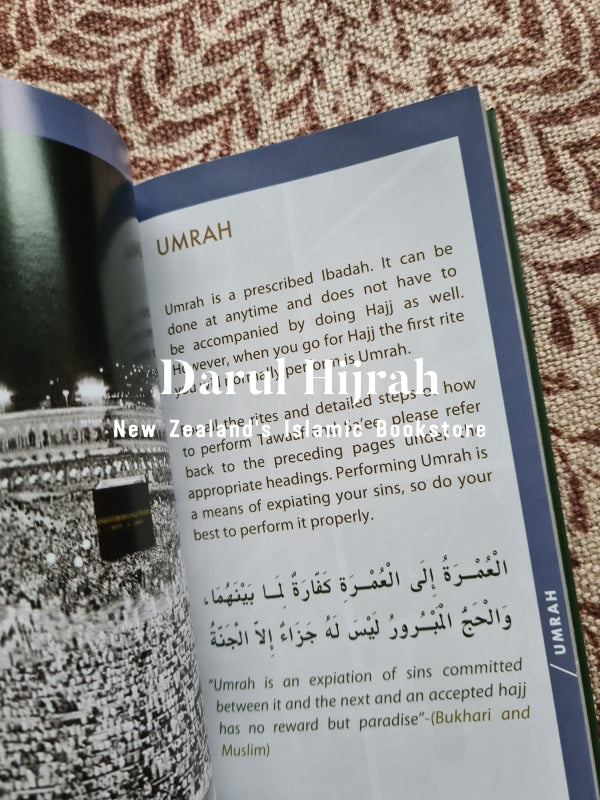 UMRAH
Umrah is a prescribed Ibadah. It can be
done at anytime and does not have to
be accompanied by doing Hajj as well.
However, when you go for Hajj the first rite
you will normally perform is Umrah.
Darul Hijrah
all the rites and detailed steps of how
New Zealand's Islamic Bookstore
to perform Tawaaf and Sa'ee, please refer
back to the preceding pages under the
appropriate headings. Performing Umrah is
a means of expiating your sins, so do your
best to perform it properly.
الْعُمْـرَةُ إِلَى الْعُمْـرَةِ كَفَّارَةٌ لَمَـا بَيْنَهُمَا،
وَالْحَجُّ الْمَبْـرُورُ لَيْسَ لَهُ جَزَاءٌ إِلاَّ الْجَنَّةُ
"Umrah is an expiation of sins committed
between it and the next and an accepted hajj
has no reward but paradise"-(Bukhari and
Muslim)
/ UMRAH